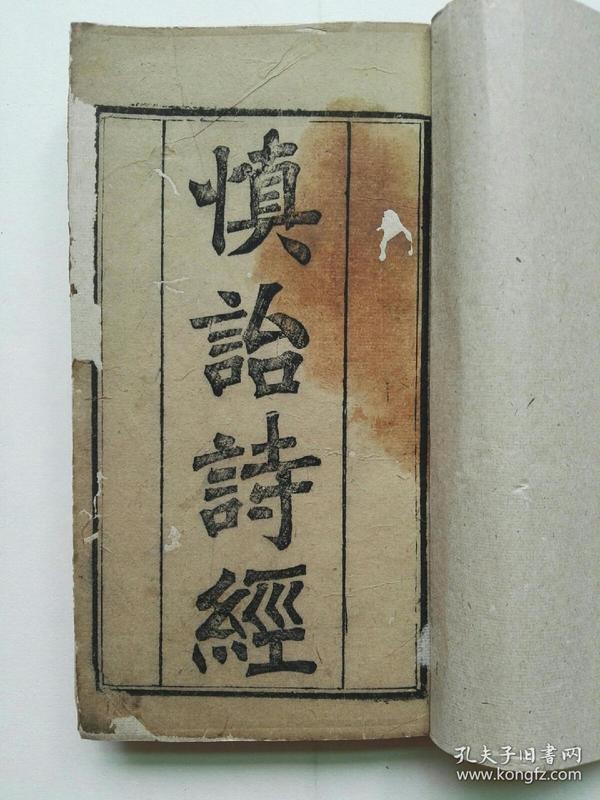 慎詒詩經
孔夫子旧書网
www.kongfz.com